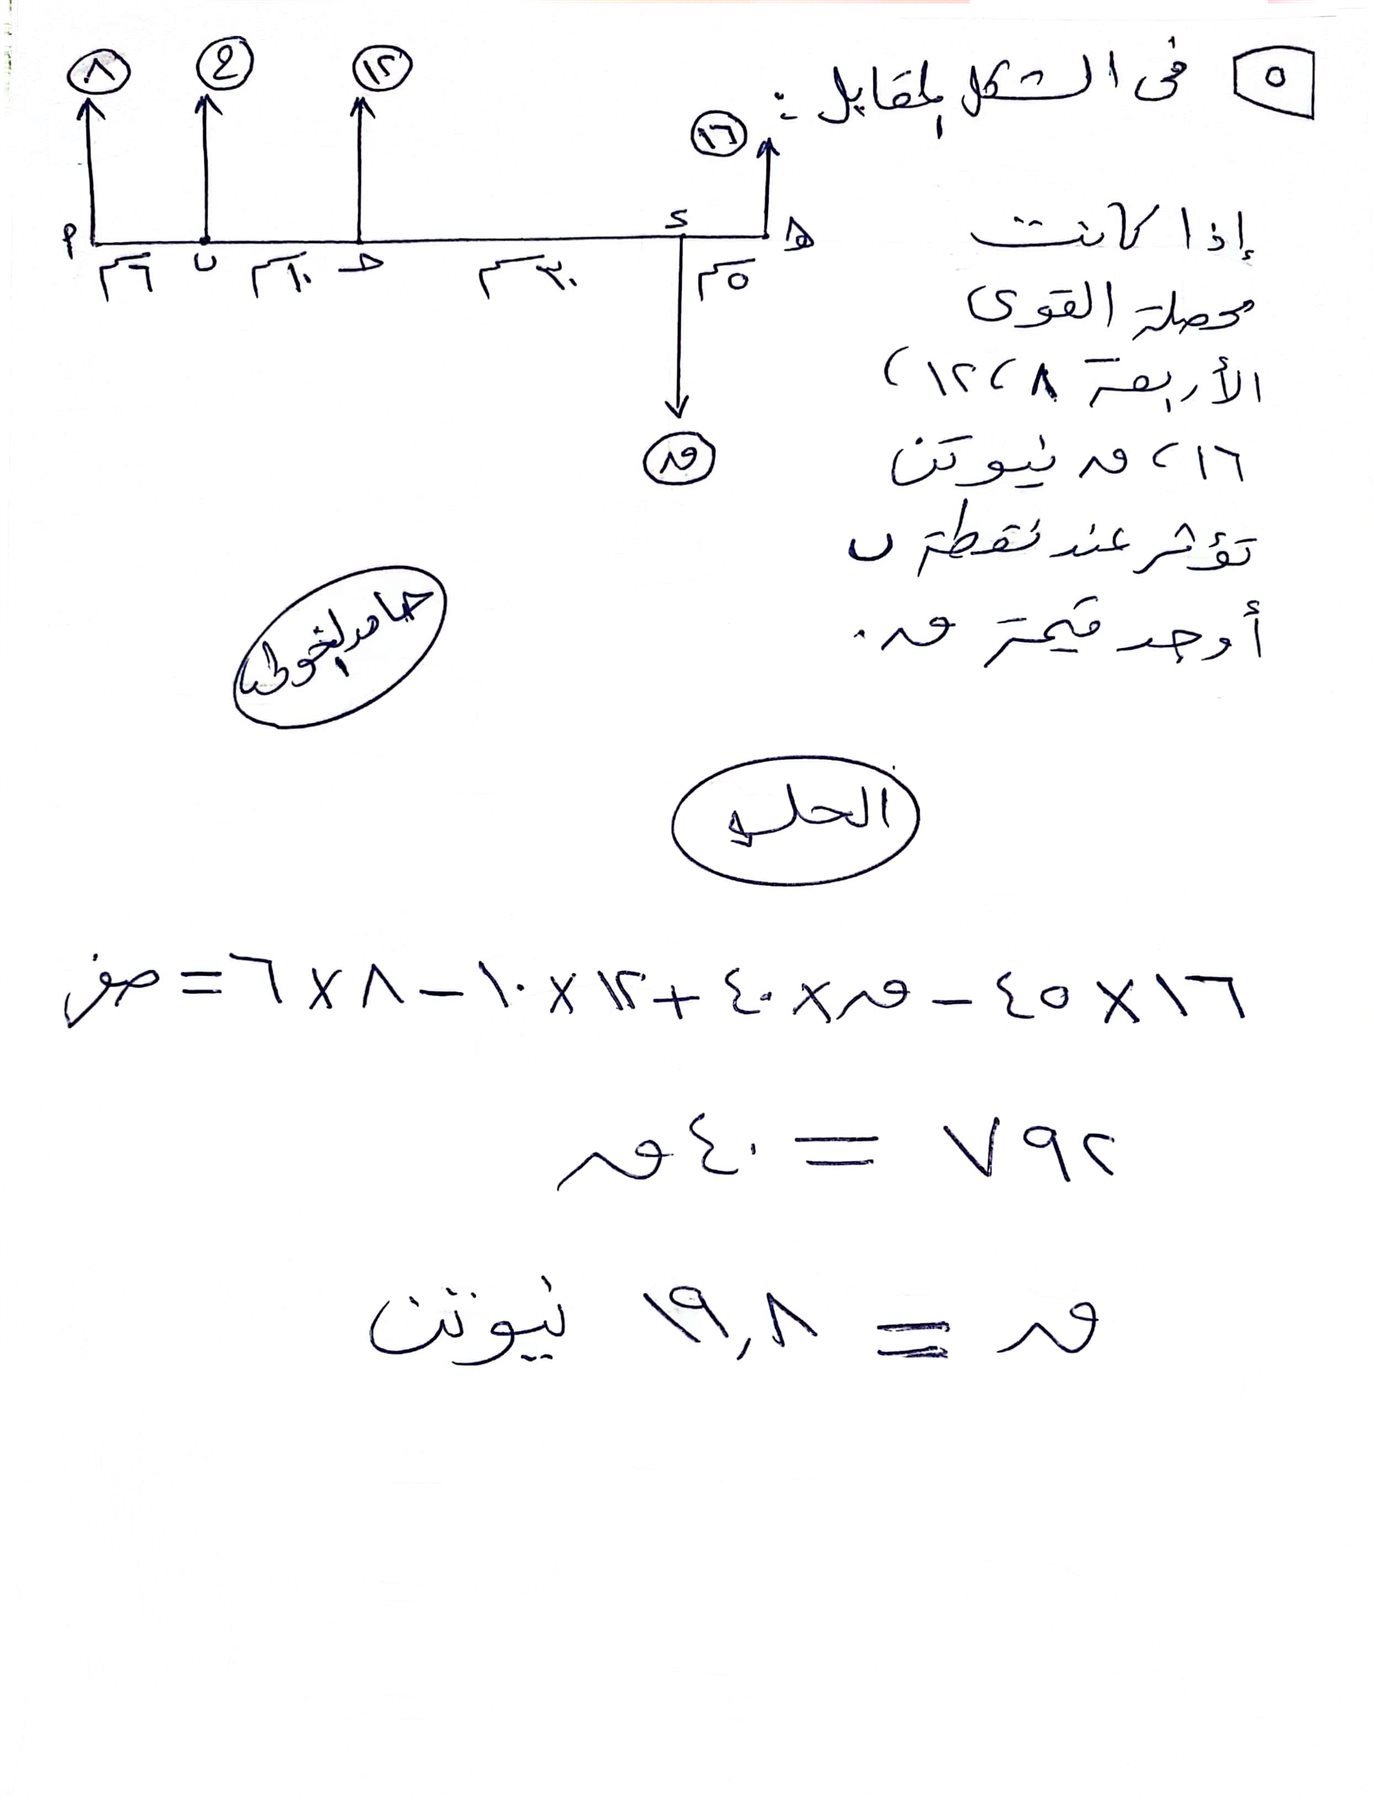 ٥ فى الشكل المقابل :
٨ ع ١٢ ١٦
م ٦سم ب ١٠سم ح ٣٠سم ء ٥سم ه
ق
إذا كانت
محصلة القوى
الأربعة ٨ ، ١٢ ،
١٦ ، ق نيوتن
تؤثر عند نقطة ب
أوجد قيمة ق .
حامد الخولى
الحل
١٦ × ٤٥ - ق × ٤٠ + ١٢ × ١٠ - ٨ × ٦ = صفر
٧٩٢ = ٤٠ ق
ق = ١٩,٨ نيوتن